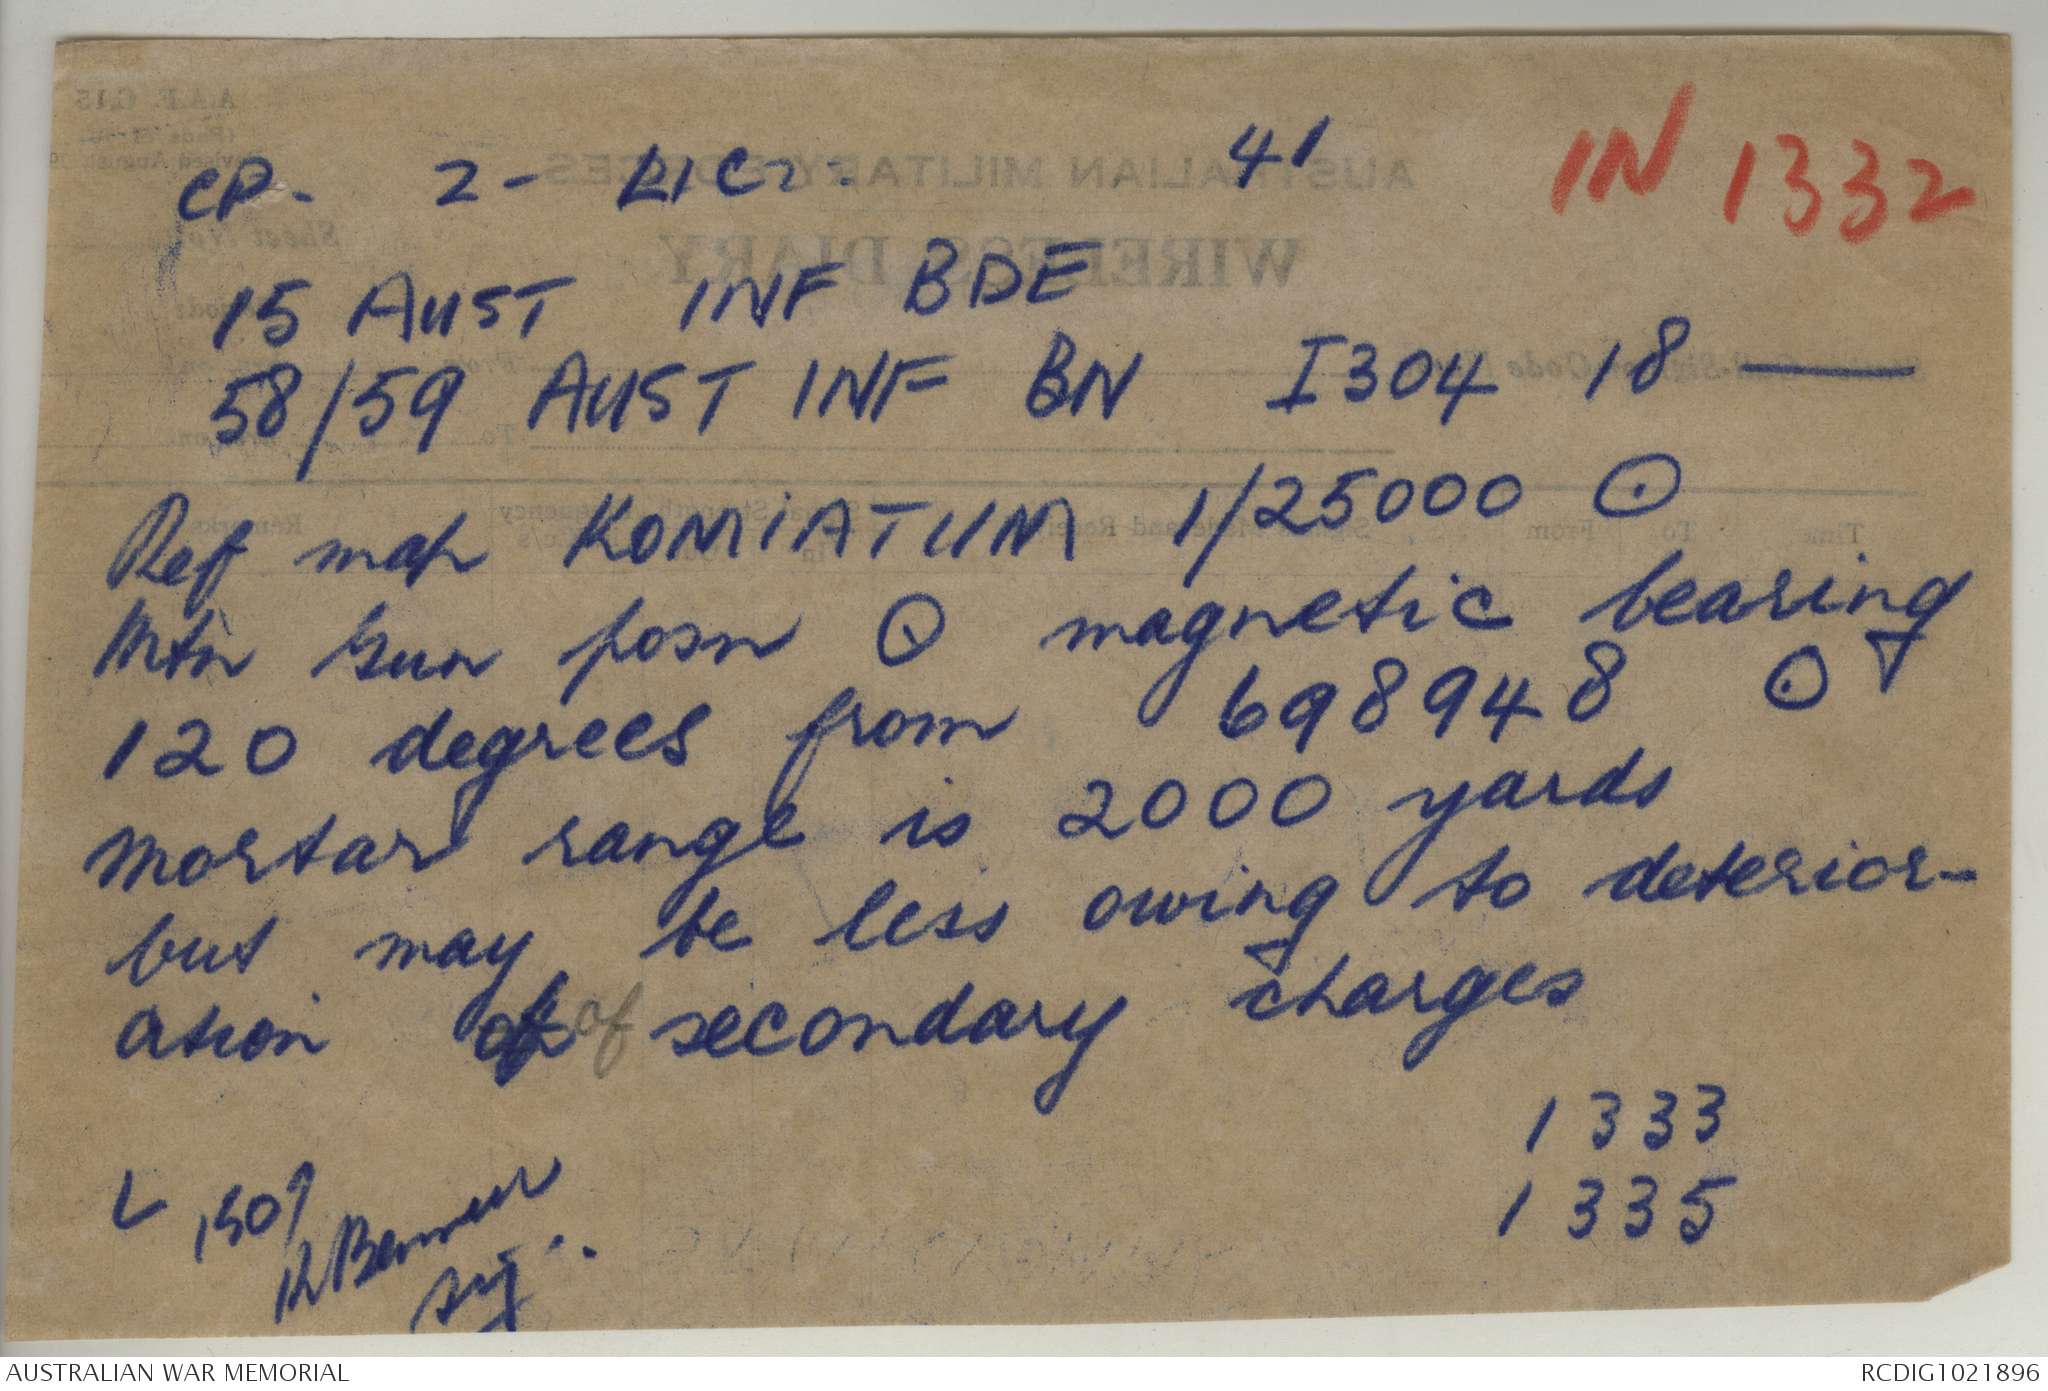 CP. 2 - LICZ. 41 IN 1332
15 AUST INF BDE
58/59 AUST INF BN I304 18 —
Ref map KOMIATUM 1/25000 ⊙
Mtn Gun posn ⊙ magnetic bearing
120 degrees from 698948 ⊙
mortar range is 2000 yards
but may be less owing to deterior-
ation of of secondary charges
1333
1335
L 1507
Sig.
AUSTRALIAN WAR MEMORIAL RCDIG1021896